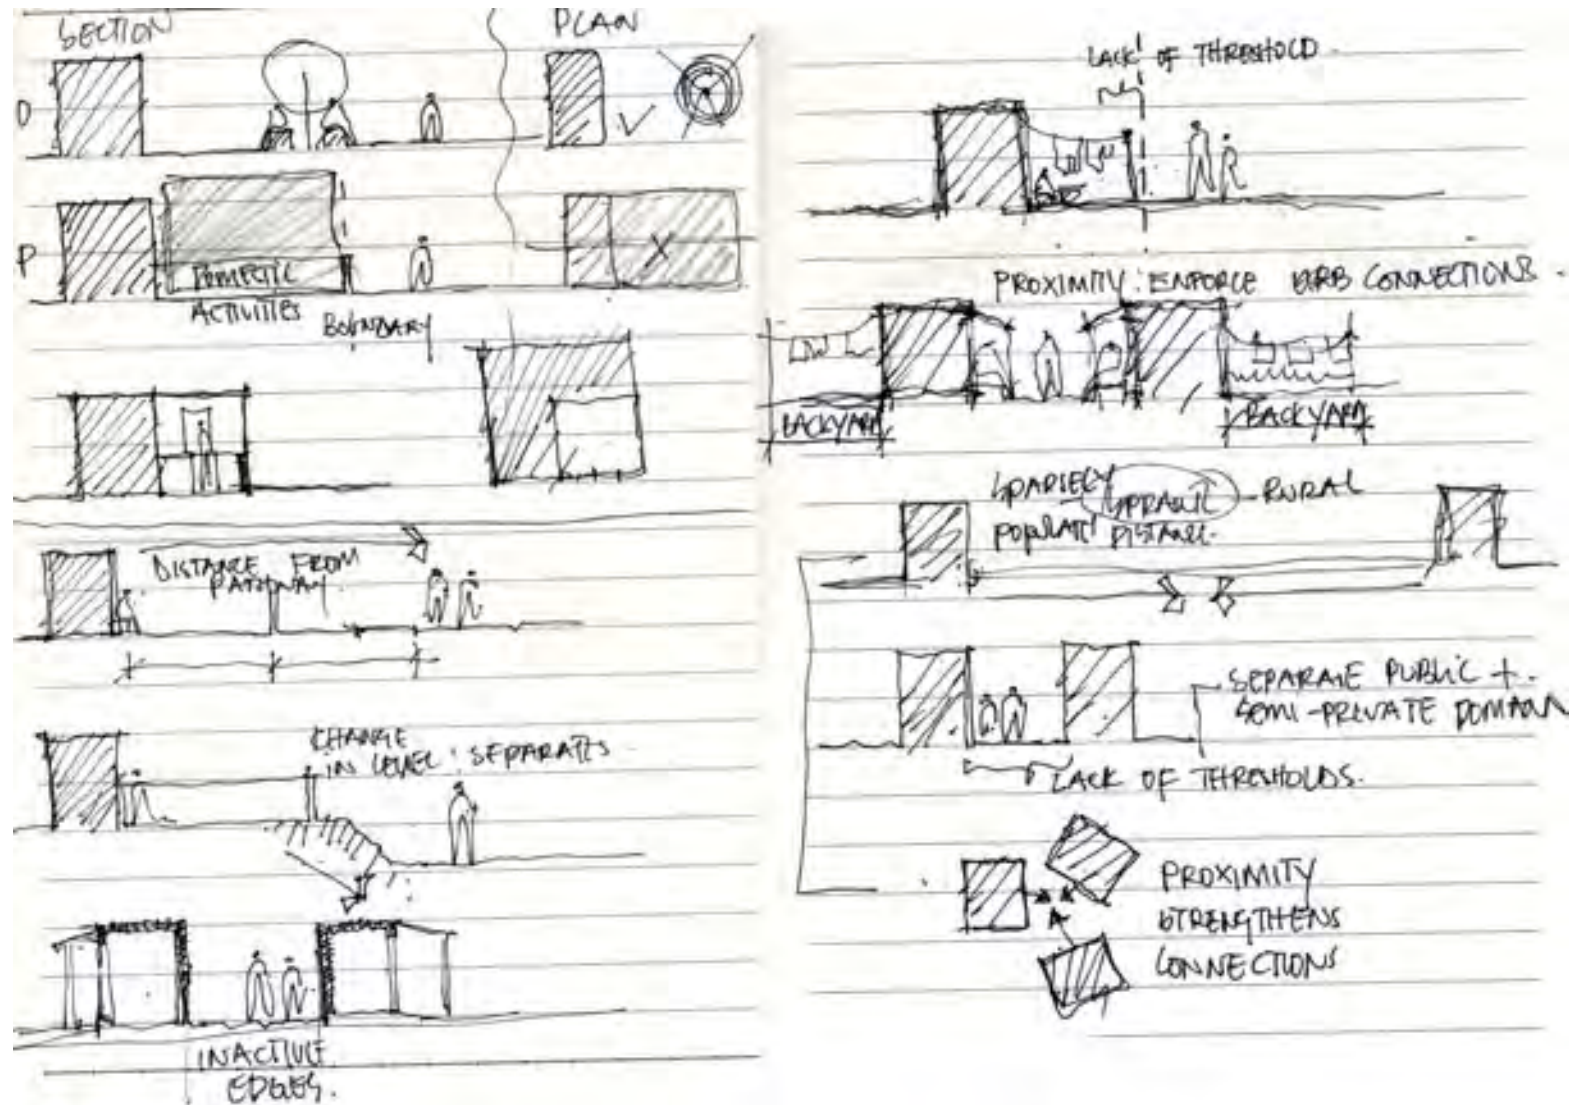 SECTION
PLAN
O
P
DOMESTIC
ACTIVITES
BOUNDARY
DISTANCE FROM
PATHWAY.
CHANGE
IN LEVEL : SEPARATES
INACTIVE
EDGES.
LACK OF THRESHOLD.
PROXIMITY : ENFORCE CONNECTIONS.
BACKYARD
BACKYARD
SPARSELY SPRAWL - RURAL
DISTANCE.
SEPARATE PUBLIC +
SEMI-PRIVATE DOMAIN
LACK OF THRESHOLDS.
PROXIMITY
STRENGTHENS
CONNECTIONS